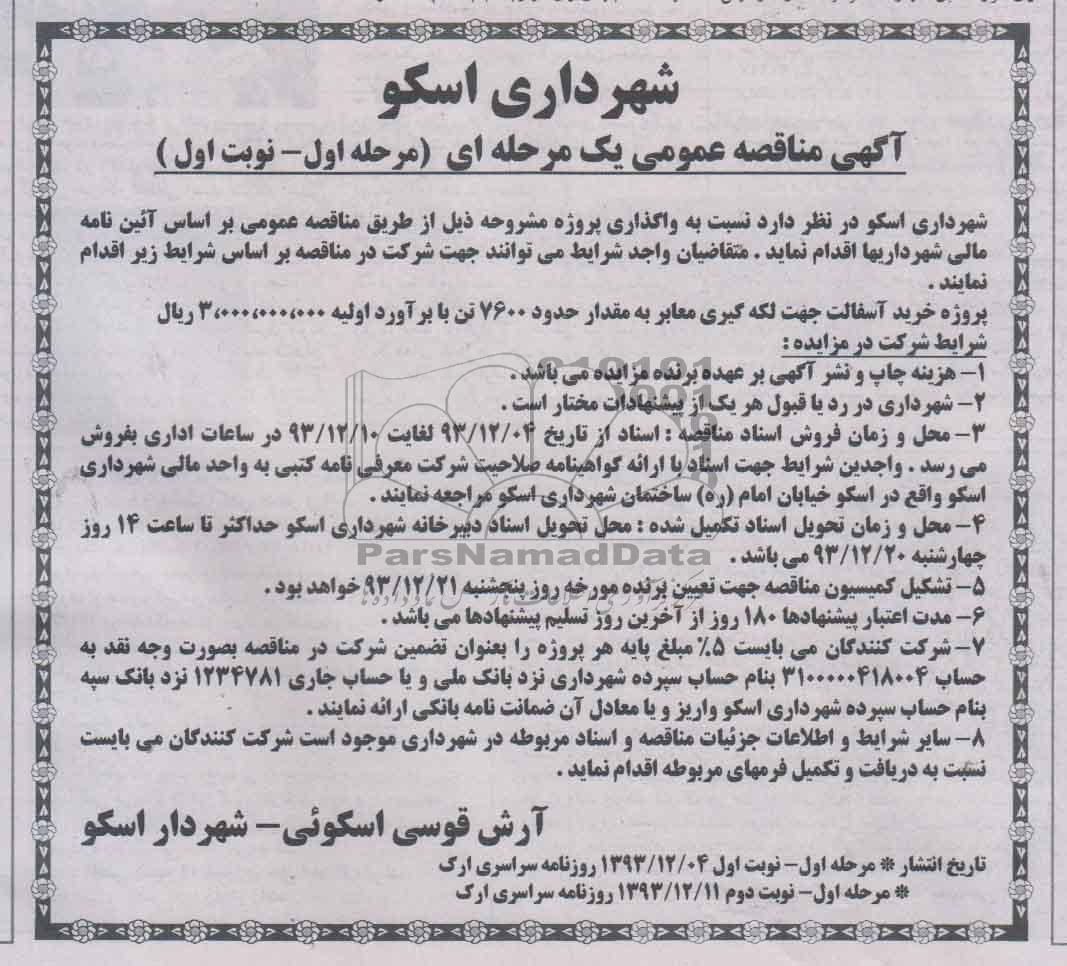 شهرداری اسکو
آگهی مناقصه عمومی یک مرحله ای (مرحله اول- نوبت اول)
شهرداری اسکو در نظر دارد نسبت به واگذاری پروژه مشروحه ذیل از طریق مناقصه عمومی بر اساس آئین نامه
مالی شهرداریها اقدام نماید . متقاضیان واجد شرایط می توانند جهت شرکت در مناقصه بر اساس شرایط زیر اقدام
نمایند .
پروژه خرید آسفالت جهت لکه گیری معابر به مقدار حدود ۷۶۰۰ تن با برآورد اولیه ۳،۰۰۰،۰۰۰،۰۰۰ ریال
شرایط شرکت در مزایده :
۱- هزینه چاپ و نشر آگهی بر عهده برنده مزایده می باشد .
۲- شهرداری در رد یا قبول هر یک از پیشنهادات مختار است .
۳- محل و زمان فروش اسناد مناقصه : اسناد از تاریخ ۹۳/۱۲/۰۴ لغایت ۹۳/۱۲/۱۰ در ساعات اداری بفروش
می رسد . واجدین شرایط جهت اسناد با ارائه گواهینامه صلاحیت شرکت معرفی نامه کتبی به واحد مالی شهرداری
اسکو واقع در اسکو خیابان امام (ره) ساختمان شهرداری اسکو مراجعه نمایند .
۴- محل و زمان تحویل اسناد تکمیل شده : محل تحویل اسناد دبیرخانه شهرداری اسکو حداکثر تا ساعت ۱۴ روز
چهارشنبه ۹۳/۱۲/۲۰ می باشد .
ParsNamadData
۵- تشکیل کمیسیون مناقصه جهت تعیین برنده مورخه روز پنجشنبه ۹۳/۱۲/۲۱ خواهد بود .
۶- مدت اعتبار پیشنهادها ۱۸۰ روز از آخرین روز تسلیم پیشنهادها می باشد .
۷- شرکت کنندگان می بایست ۵٪ مبلغ پایه هر پروژه را بعنوان تضمین شرکت در مناقصه بصورت وجه نقد به
حساب ۳۱۰۰۰۰۰۴۱۸۰۰۴ بنام حساب سپرده شهرداری نزد بانک ملی و یا حساب جاری ۱۲۳۴۷۸۱ نزد بانک سپه
بنام حساب سپرده شهرداری اسکو واریز و یا معادل آن ضمانت نامه بانکی ارائه نمایند .
۸- سایر شرایط و اطلاعات جزئیات مناقصه و اسناد مربوطه در شهرداری موجود است شرکت کنندگان می بایست
نسبت به دریافت و تکمیل فرمهای مربوطه اقدام نماید .
آرش قوسی اسکوئی- شهردار اسکو
تاریخ انتشار * مرحله اول- نوبت اول ۱۳۹۳/۱۲/۰۴ روزنامه سراسری ارک
* مرحله اول- نوبت دوم ۱۳۹۳/۱۲/۱۱ روزنامه سراسری ارک